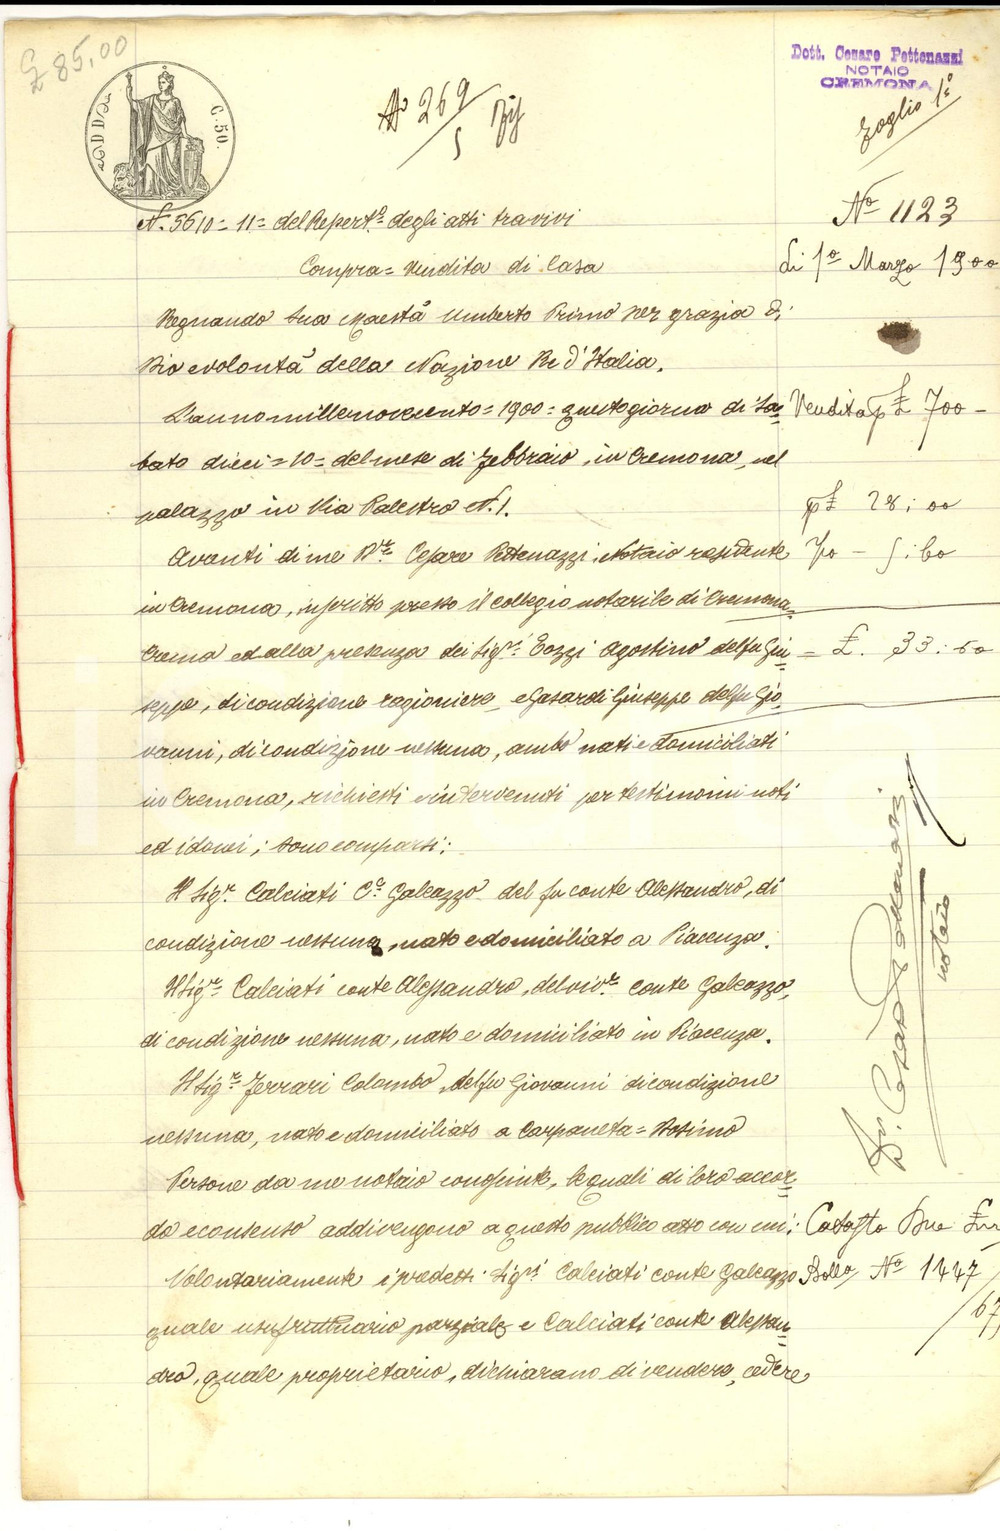 £ 85,00
C. 50.
Dott. Cesare Pettenazzi
NOTAIO
CREMONA
foglio 1º
Nº 269
N.º 5610 = 11 = del Repert.º degli atti tra vivi
Compra = Vendita di Casa
Regnando Sua Maestà Umberto Primo per grazia di
Dio e volontà della Nazione Re d'Italia.
L'anno millenovecento = 1900 = questo giorno di Sa=
bato dieci = 10 = del mese di febbraio, in Cremona, nel
palazzo in Via Palestro N. 1.
Avanti di me D.r Cesare Pettenazzi, Notaio residente
in Cremona, inscritto presso il collegio notarile di Cremona=
Crema ed alla presenza dei Sig.ri Tozzi Agostino del fu Giu=
seppe, di condizione ragioniere, e Gasardi Giuseppe del fu Gio=
vanni, di condizione nessuna, ambo nati e domiciliati
in Cremona, richiesti e intervenuti per testimoni noti
ed idonei; sono comparsi:
Il Sig.r Calciati C.e Galeazzo del fu conte Alessandro, di
condizione nessuna, nato e domiciliato a Piacenza.
Il Sig.r Calciati conte Alessandro, del viv.te conte Galeazzo,
di condizione nessuna, nato e domiciliato in Piacenza.
Il Sig.r Ferrari Colombo, del fu Giovanni di condizione
nessuna, nato e domiciliato a Carpaneta = Dosimo
Persone da me notaio conosciute, le quali di loro accor=
do e consenso addivengono a questo pubblico atto con cui:
Volontariamente i predetti Sig.ri Calciati conte Galeazzo
quale usufruttuario parziale e Calciati conte Alessan=
dro, quale proprietario, dichiarano di vendere, cedere
Nº 1123
Li 1º Marzo 1900
Vendita p £ 700 -
p £ 28:00
70 - 5:60
= £. 33:60
D.r Cesare Pettenazzi
notaio
Catasto Due £
Bollo Nº 1447
/67